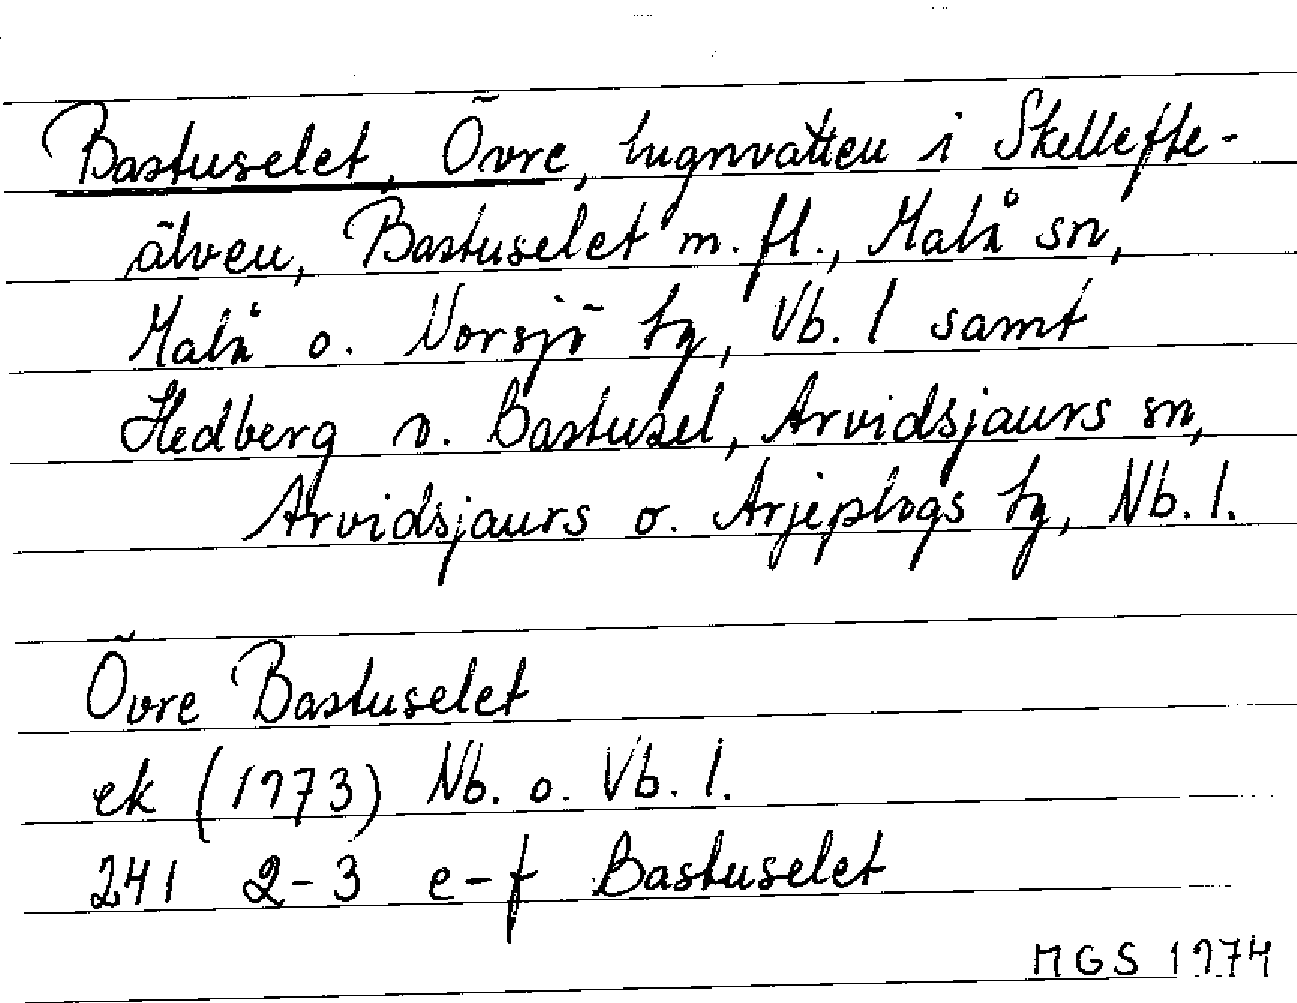 Bastuselet, Övre, lugnvatten i Skellefte-
älven, Bastuselet m. fl., Malå sn,
Malå o. Norsjö tg, Vb. l samt
Hedberg o. Bastusel, Arvidsjaurs sn,
Arvidsjaurs o. Arjeplogs tg, Nb. l.
Övre Bastuselet
ek (1973) Nb. o. Vb. l.
24I 2-3 e-f Bastuselet
MGS 1974